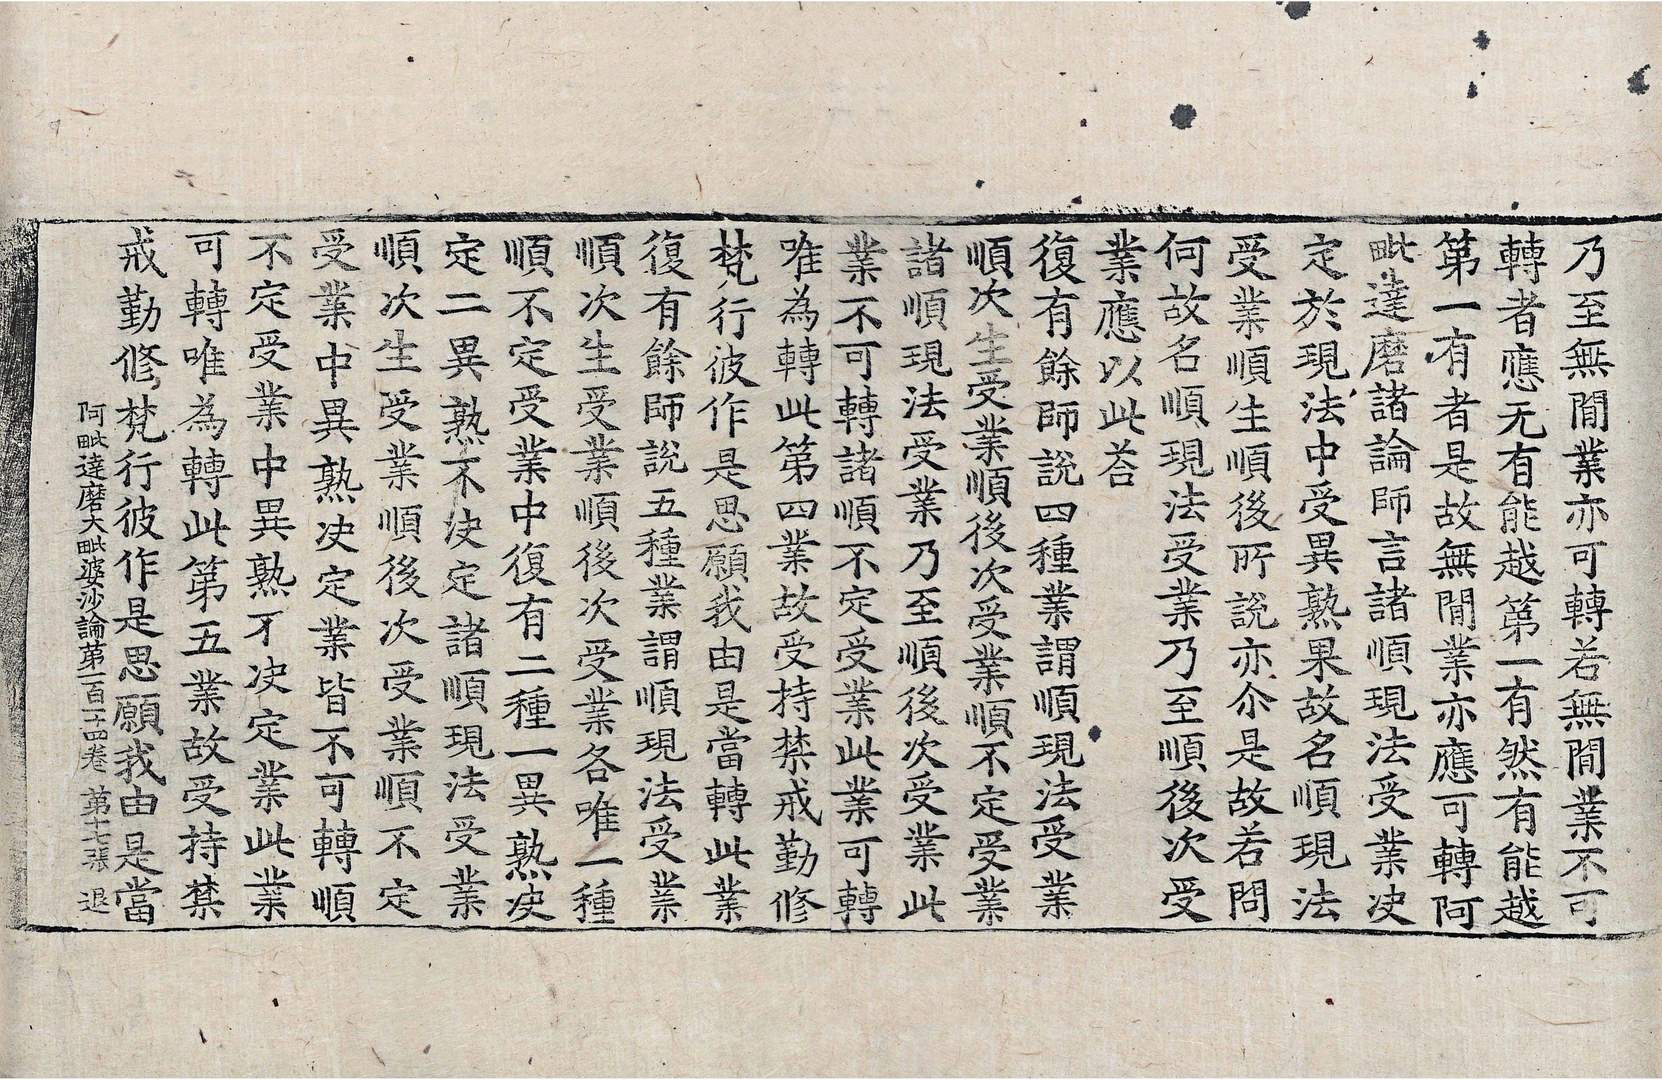 乃至無間業亦可轉若無間業不可
轉者應无有能越第一有然有能越
第一有者是故無間業亦應可轉阿
毗達磨諸論師言諸順現法受業決
定於現法中受異熟果故名順現法
受業順生順後所說亦尒是故若問
何故名順現法受業乃至順後次受
業應以此荅
復有餘師說四種業謂順現法受業
順次生受業順後次受業順不定受業
諸順現法受業乃至順後次受業此
業不可轉諸順不定受業此業可轉
唯為轉此第四業故受持禁戒勤修
梵行彼作是思願我由是當轉此業
復有餘師說五種業謂順現法受業
順次生受業順後次受業各唯一種
順不定受業中復有二種一異熟决
定二異熟不决定諸順現法受業
順次生受業順後次受業順不定
受業中異熟决定業皆不可轉順
不定受業中異熟不决定業此業
可轉唯為轉此第五業故受持禁
戒勤修梵行彼作是思願我由是當
阿毗達磨大毗婆沙論第一百一十四卷 第十七張 退